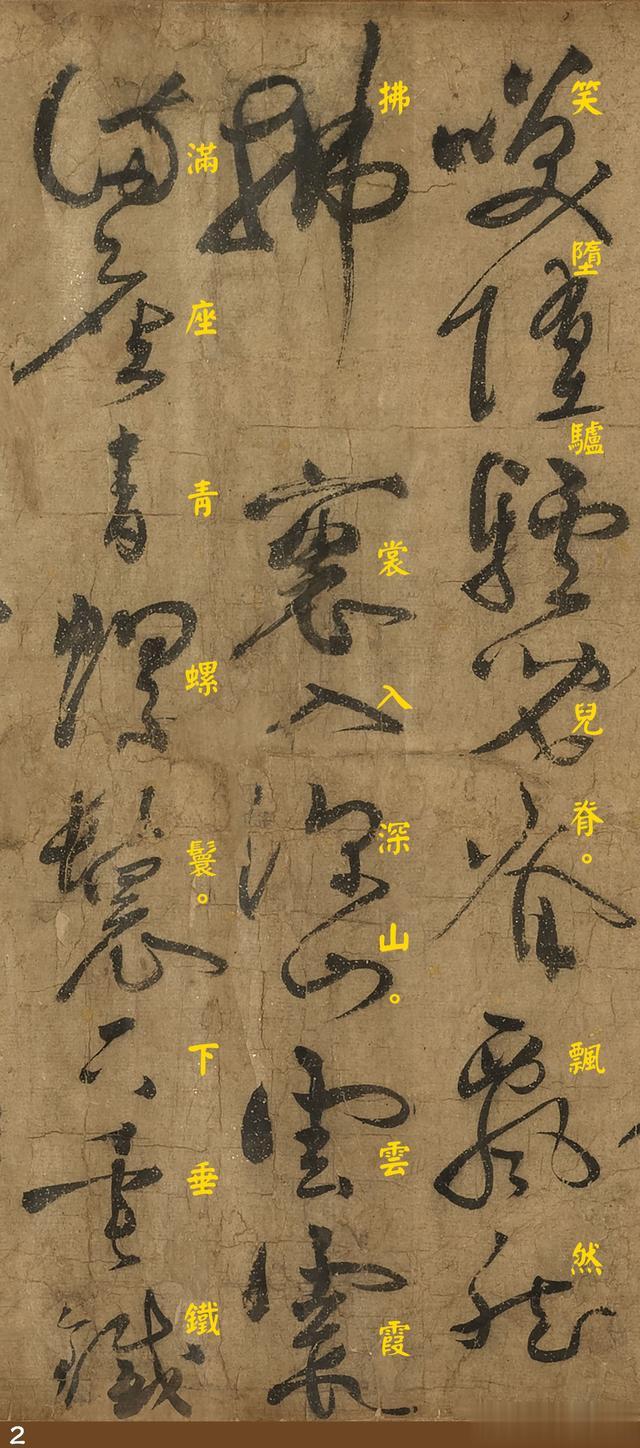 笑墮驢兒脊。飄然
拂裳入深山。雲霞
滿座青螺鬟。下垂鐵
2